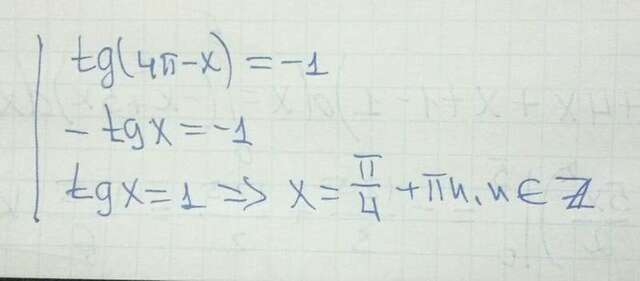 tg(4π-x) = -1
-tgx = -1
tgx = 1 => x = π/4 + πn, n ∈ ℤ